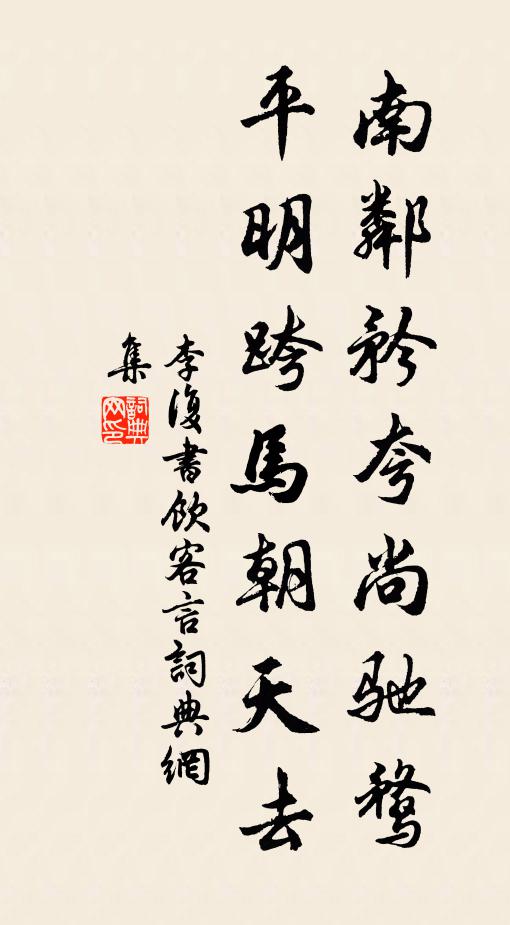 南鄰矜夸尚馳騖
平明跨馬朝天去
李復書飲客言詞典網
集
詞典网印